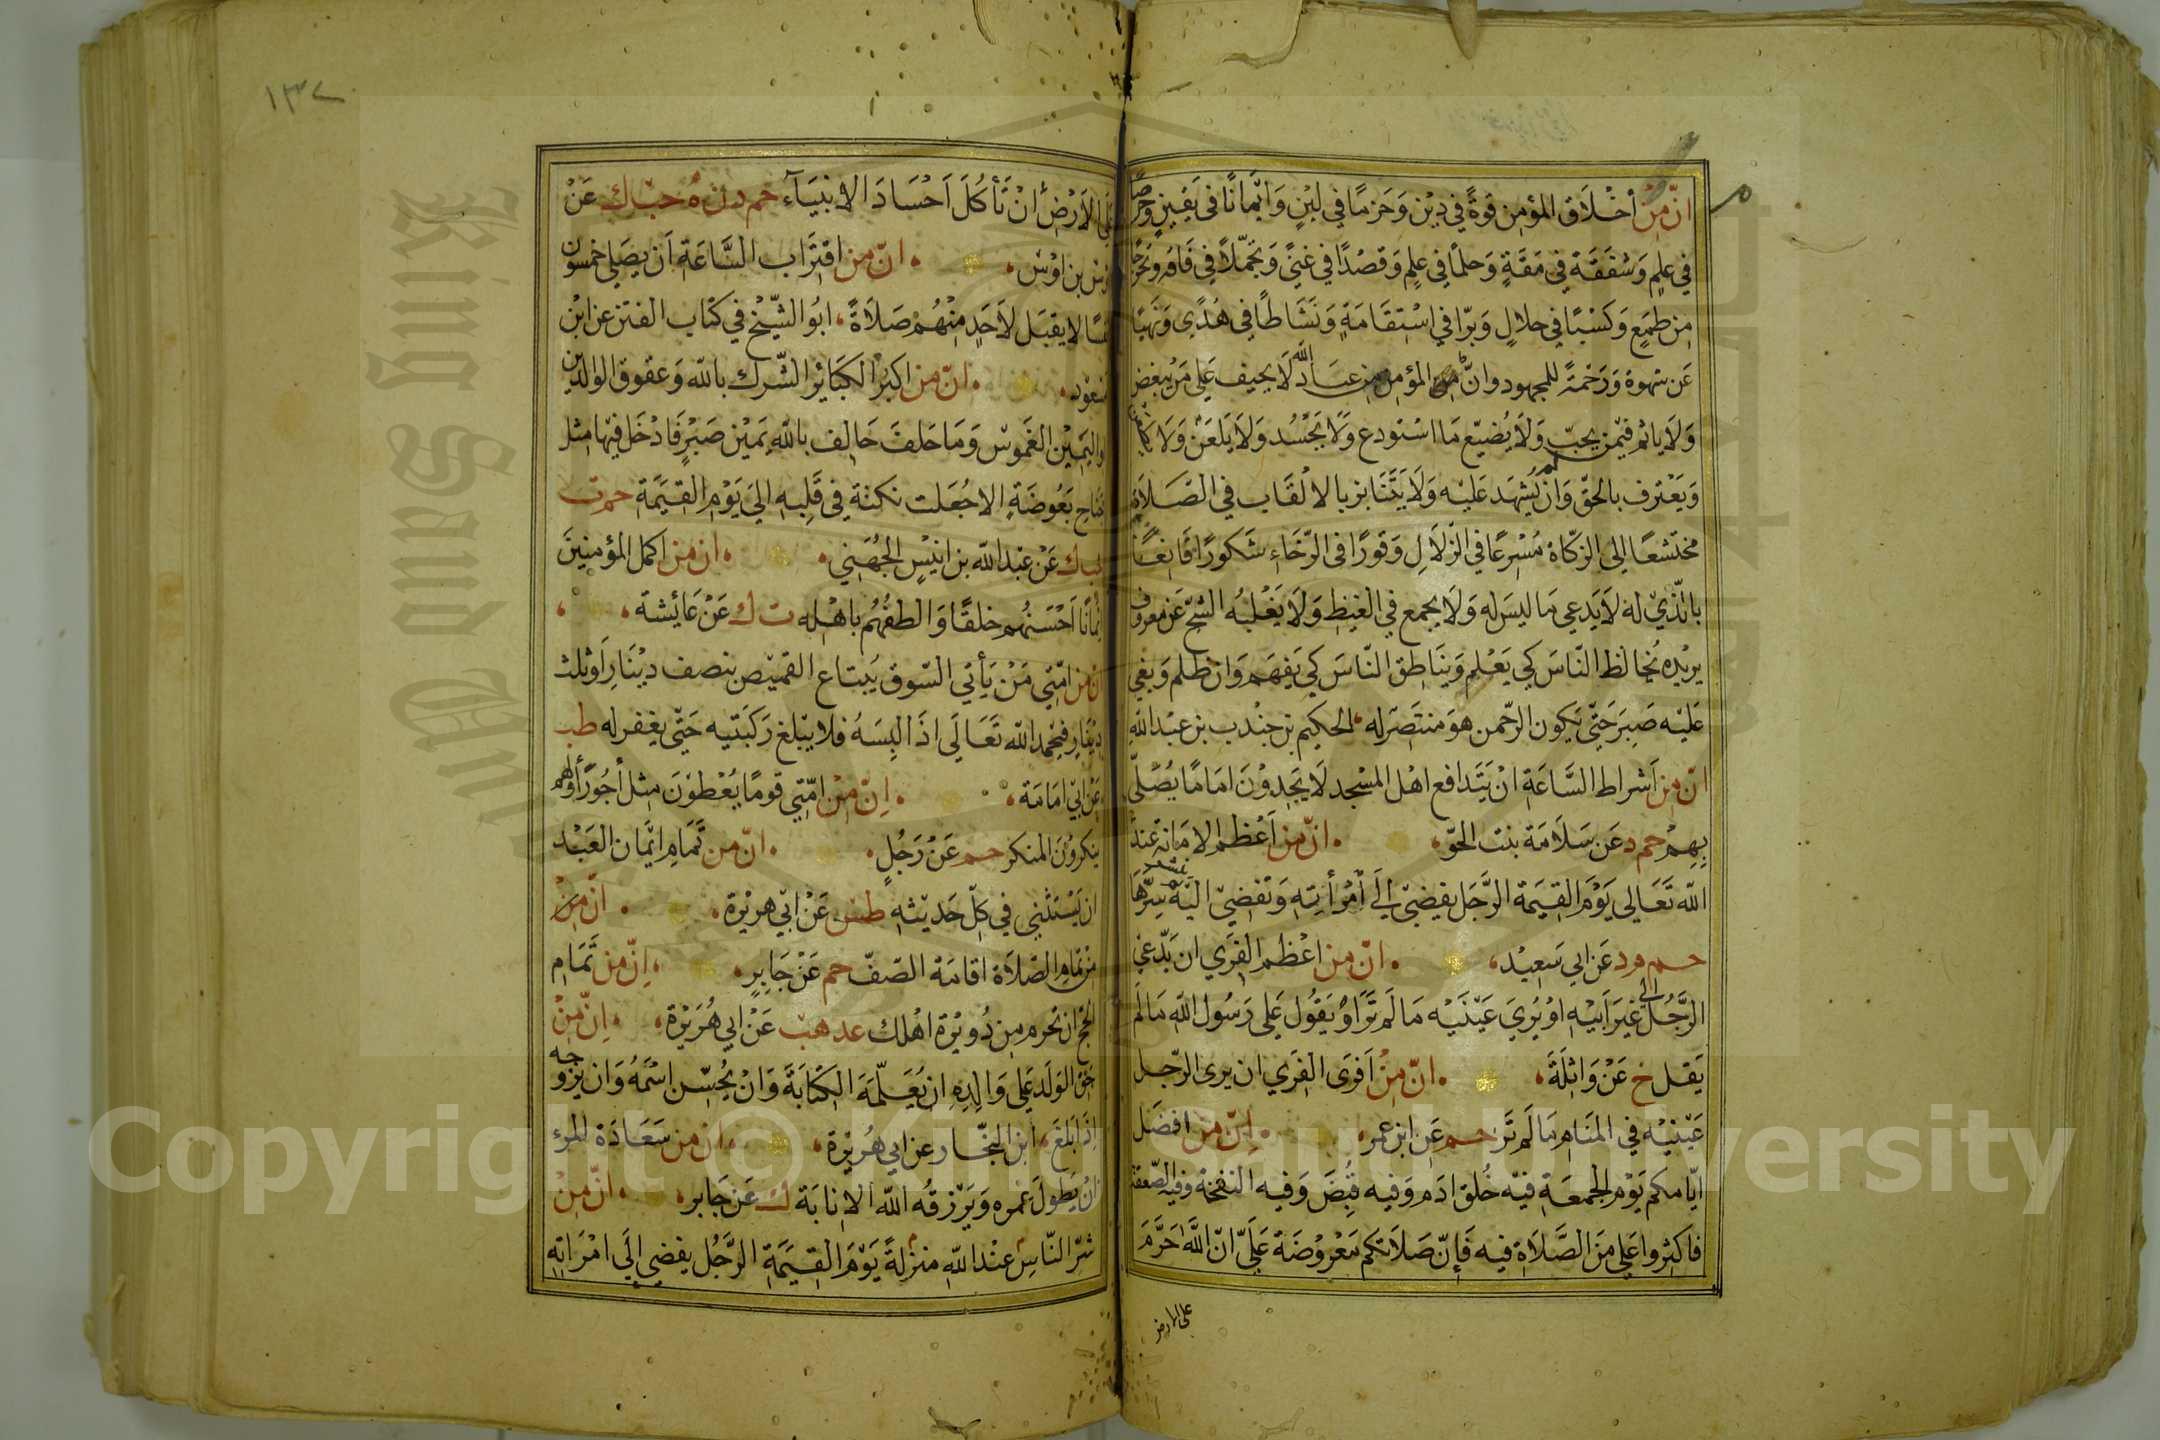 انّ من أخلاق المؤمن قوةً في دين وحزمًا في لين وايمانًا في يقين وحرصًا
في علم وشفقة في مقة وحلمًا في علم وقصدًا في غنى وتجملًا في فاقة وتحرجًا
من طمع وكسبًا في حلال وبرّا في استقامة ونشاطًا في هدى ونهيًا
عن شهوة ورحمة للمجهود وانّ المؤمن من عباد الله لا يحيف على من يبغض
ولا ياثم فيمن يحبّ ولا يضيّع ما استودع ولا يحسد ولا يلعن ولا
ويعترف بالحقّ وان لم يشهد عليه ولا يتنابز بالالقاب في الصّلاة
متخشعًا الى الزكاة مسرعًا في الزلازل وقورًا في الرّخاء شكورًا قانعًا
بالّذي له لا يدعي ما ليس له ولا يجمع في الغيظ ولا يغلبه الشحّ عن معروف
يريده يخالط النّاس كي يعلم ويناطق النّاس كي يفهم وان ظلم وبغي
عليه صبر حتّى يكون الرّحمن هو منتصر له الحكيم بن جندب بن عبد الله
انّ من أشراط السّاعة ان يتدافع اهل المسجد لا يجدون امامًا يصلّي
بهم حم د عن سلامة بنت الحرّ انّ من أعظم الامانة عند
الله تعالى يوم القيمة الرّجل يفضي الى أمرأته وتفضي اليه ثم ينشر سرّها
حم م د عن ابي سعيد انّ من اعظم الفرى ان يدّعي
الرّجل الى غير ابيه او يُري عينيه ما لم تر او يقول على رسول الله ما لم
يقل خ عن واثلة انّ من أفرى الفرى ان يري الرّجل
عينيه في المنام ما لم تر حم عن ابن عمر انّ من افضل
ايّامكم يوم الجمعة فيه خُلق ادم وفيه قُبض وفيه النفخة وفيه الصّعقة
فاكثروا علي من الصّلاة فيه فإنّ صلاتكم معروضة عليّ انّ الله حرّم
على الارض
١٣٧
على الأرض أنْ تأكل أجساد الانبياء حم د ن ه حب ك عن
اوس بن اوس انّ من اقتراب السّاعة أن يصلي خمسون
نفسًا لا يقبل لأحد منهم صلاةً ابو الشّيخ في كتاب الفتن عن ابن
مسعود انّ من اكبر الكبائر الشّرك بالله وعقوق الوالدين
واليمين الغموس وما حلف حالف بالله يمين صبر فادخل فيها مثل
جناح بعوضة الا جعلت نكتة في قلبه الى يوم القيمة حم ت
حب ك عن عبد الله بن انيس الجهني ان من اكمل المؤمنين
ايمانًا احسنهم خلقًا والطفهم باهله ت ك عن عائشة
ان من امّتي من يأتي السّوق يبتاع القميص بنصف دينار أو ثلث
دينار فيحمد الله تعالى اذا لبسه فلا يبلغ ركبتيه حتّى يغفر له طب
عن ابي امامة انّ من امّتي قومًا يعطون مثل أجور أولهم
ينكرون المنكر حم عن رجل انّ من تمام ايمان العبد
ان يستثني في كلّ حديثه طس عن ابي هريرة انّ من
من تمام الصّلاة اقامة الصّفّ حم عن جابر انّ من تمام
الحجّ ان تحرم من دويرة اهلك عد هب عن ابي هريرة انّ من
حقّ الولد على والده ان يعلّمه الكتابة وان يحسّن اسمه وان يزوجه
إذا بلغ ابن النجّار عن ابي هريرة ان من سعادة المرء
ان يطول عمره ويرزقه الله الانابة ك عن جابر انّ من
شرّ النّاس عند الله منزلة يوم القيمة الرّجل يفضي الى امراته